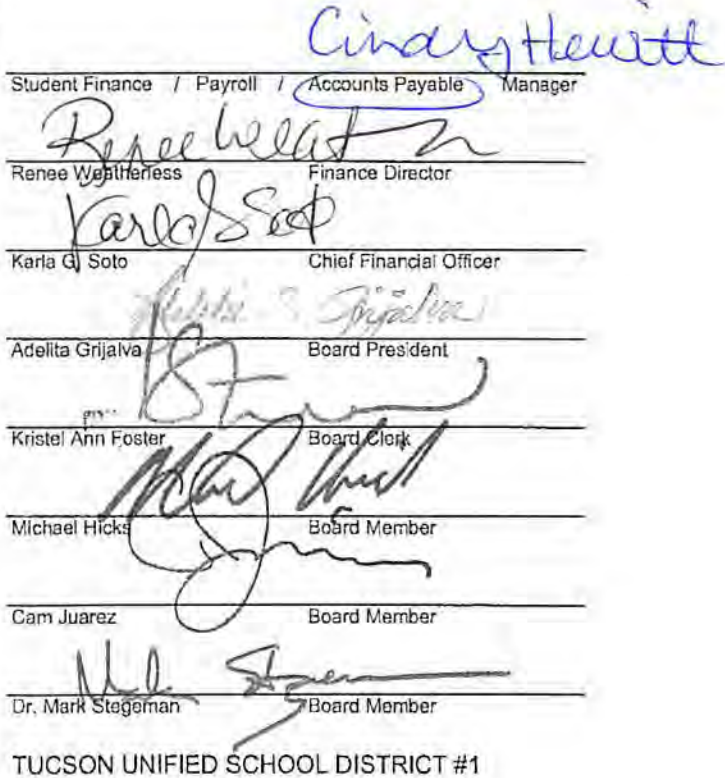 Cindy Hewitt
Student Finance / Payroll / Accounts Payable Manager
Renee Weat
Renee Weatherless Finance Director
Karla G Soto
Karla G. Soto Chief Financial Officer
Adelita S. Grijalva
Adelita Grijalva Board President
Kristel Ann Foster Board Clerk
Michael Hicks Board Member
Cam Juarez Board Member
Mark Stegeman
Dr. Mark Stegeman Board Member
TUCSON UNIFIED SCHOOL DISTRICT #1